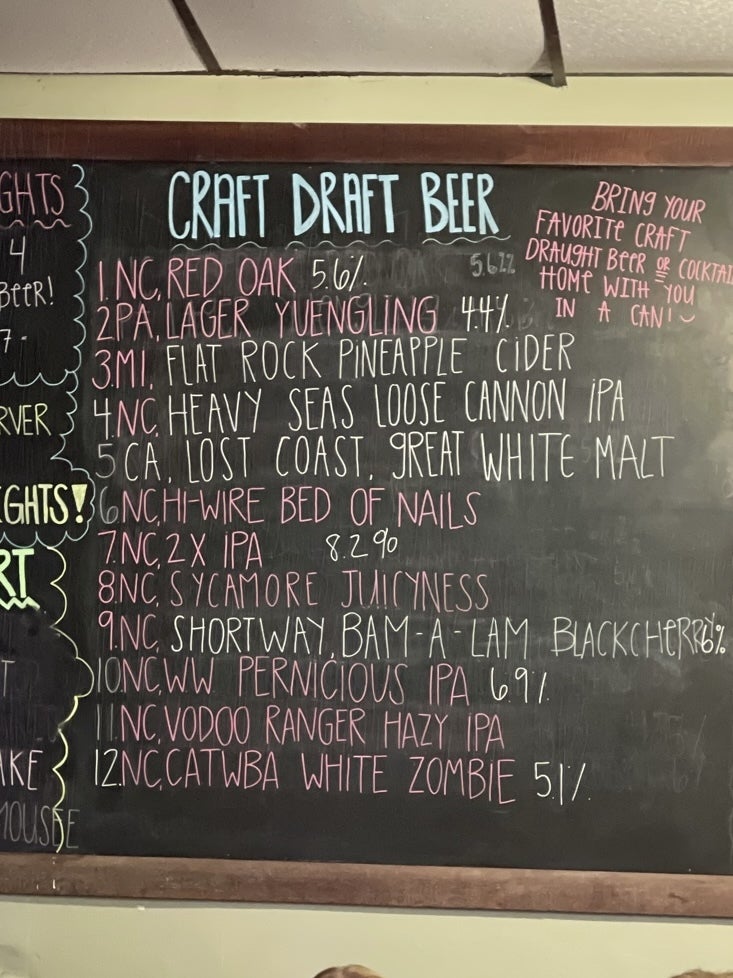 GHTS
4
BEER!
7-
RVER
GHTS!
RT
T
AKE
MOUSSE
CRAFT DRAFT BEER
1.NC, RED OAK 5.6%
2PA, LAGER YUENGLING 4.4%
3.MI, FLAT ROCK PINEAPPLE CIDER
4.NC, HEAVY SEAS LOOSE CANNON IPA
5 CA, LOST COAST, GREAT WHITE MALT
6.NC, HI-WIRE BED OF NAILS
7.NC, 2X IPA 8.2%
8.NC, SYCAMORE JUICYNESS
9.NC, SHORTWAY, BAM-A-LAM BLACKCHERRY 6%
10NC, WW PERNICIOUS IPA 6.9%
11.NC, VODOO RANGER HAZY IPA
12.NC, CATWBA WHITE ZOMBIE 5.1%
BRING YOUR
FAVORITE CRAFT
DRAUGHT BEER OR COCKTAI
HOME WITH YOU
IN A CAN!